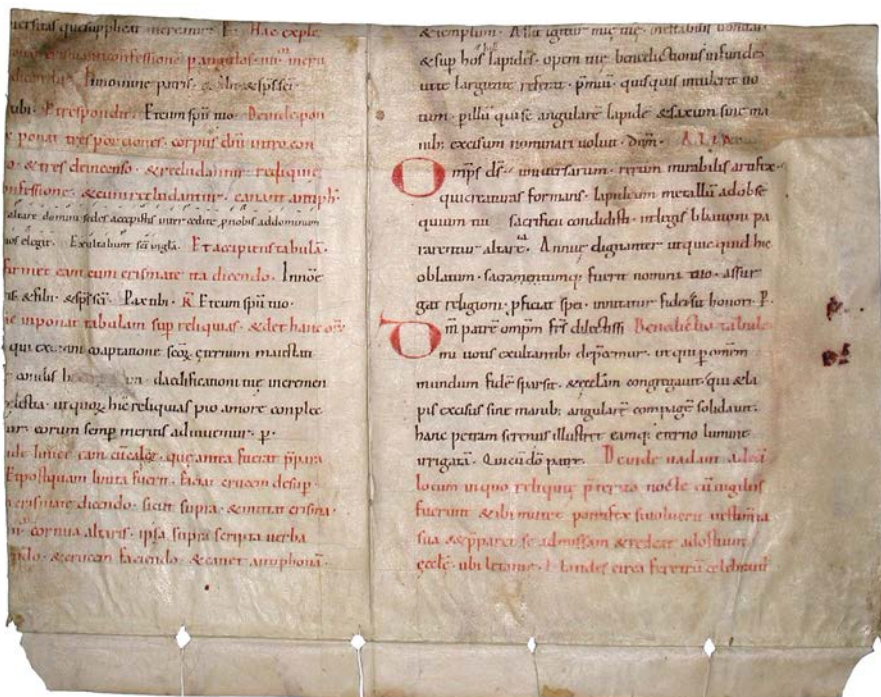 quesupplicat incremur. P. Hac exple
confessione pangulos
In nomine patris. & filii & sps sci.
tibi. Et respondit. Et cum spu tuo. Deinde pon
ponat tres porciones. corpus dni intro con
o. & tres de incenso. & recludantur reliquie
onfessione. & cum recludantur. canant antiph.
altare domini sedes accepistis intercedite pro nobis ad dominum
uos elegit. Exultabunt sci in gła. Et accipiens tabulā.
firmet eam cum crismate ita dicendo. In nōe
ris & filii. & sps sci. Pax tibi. R Et cum spu tuo.
inponat tabulam sup reliquias. & det hanc
qui ex coaptatione scōꝝ eternum maiestati
condis da edificationi tuę incremen
lestia. ut quoꝝ hic reliquias pio amore conplec
ur. eorum semp meritis adiuuemur. p.
liniet eam cū calce. que antea fuerat ppara
Et postquam linita fuerit. faciat crucem desup
crismate dicendo. sicut supra. & mittat crisma.
cornua altaris. ipsa supra scripta uerba
& crucem faciendo. & canet antiphonā.
& templum. igitur tuę
& sup hos lapides. opem tuę benedictionis infunde.
largiente referat. pmiū. quisquis intulerit uo
tum. p illū qui se angularē lapidē & saxum sine ma
nib; excisum nominari uoluit. dnm. ALIA
Omps ds. uniuersarum. rerum mirabilis artifex.
qui creaturas formans. lapideum metallū ad obse
quium tui sacrificii condidisti. ut legis libamini pa
rarentur altaria. Annue dignanter ut quicquid hic
oblatum. sacramentumq; fuerit nomini tuo. assur
gat religioni. pficiat spei. innitatur fidei sit honori. P.
Dm patrē ompm frs dilectissi Benedictio tabule
mi uotis exultantib; depcemur. ut qui p omnem
mundum fidē sparsit. & ęcclam congregauit. qui & la
pis excisus sine manib; angularē compagē solidauit.
hanc petram serenus illustret eamq; eterno lumine
irrigatā. Qui cū dō patre. Deinde uadant ad eū
locum in quo reliquie pterita nocte cū uigiliis
fuerunt & ibi mutet pontifex si uoluerit uestimta
sua & pparet se ad missam & redeat ad ostium
ęccle. ubi letanie. & laudes circa feretrū celebrant